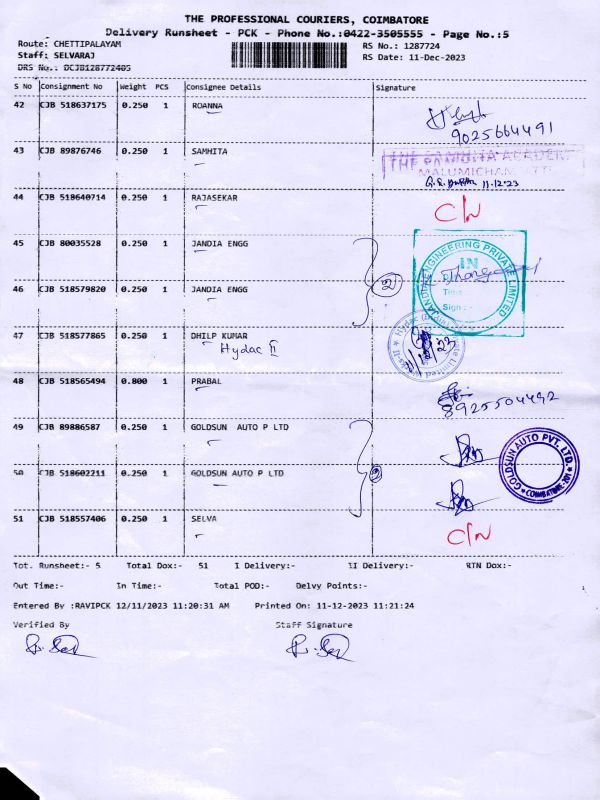 THE PROFESSIONAL COURIERS, COIMBATORE
Delivery Runsheet - PCK - Phone No.:0422-3505555 - Page No.:5
Route: CHETTIPALAYAM
RS No.: 1287724
Staff: SELVARAJ
RS Date: 11-Dec-2023
DRS No.: DCJB128772405
S No Consignment No Weight PCS Consignee Details Signature
42 CJB 518637175 0.250 1 ROANNA
9025664491
43 CJB 89876746 0.250 1 SAMHITA
THE SAMHITA ACADEMY
MALUMICHAMPATTI
11-12-23
44 CJB 518640714 0.250 1 RAJASEKAR
C/N
45 CJB 80035528 0.250 1 JANDIA ENGG
JANDIA ENGINEERING PRIVATE LIMITED
IN
Time
Sign :-
2
46 CJB 518579820 0.250 1 JANDIA ENGG
47 CJB 518577865 0.250 1 DHILP KUMAR
Hydac II
Hydac
11/12/23
48 CJB 518565494 0.800 1 PRABAL
8925504492
49 CJB 89886587 0.250 1 GOLDSUN AUTO P LTD
GOLDSUN AUTO PVT. LTD.
COIMBATORE-201
2
50 CJB 518602211 0.250 1 GOLDSUN AUTO P LTD
51 CJB 518557406 0.250 1 SELVA
C/N
Tot. Runsheet:- 5 Total Dox:- 51 I Delivery:- II Delivery:- RTN Dox:-
Out Time:- In Time:- Total POD:- Delvy Points:-
Entered By :RAVIPCK 12/11/2023 11:20:31 AM Printed On: 11-12-2023 11:21:24
Verified By Staff Signature